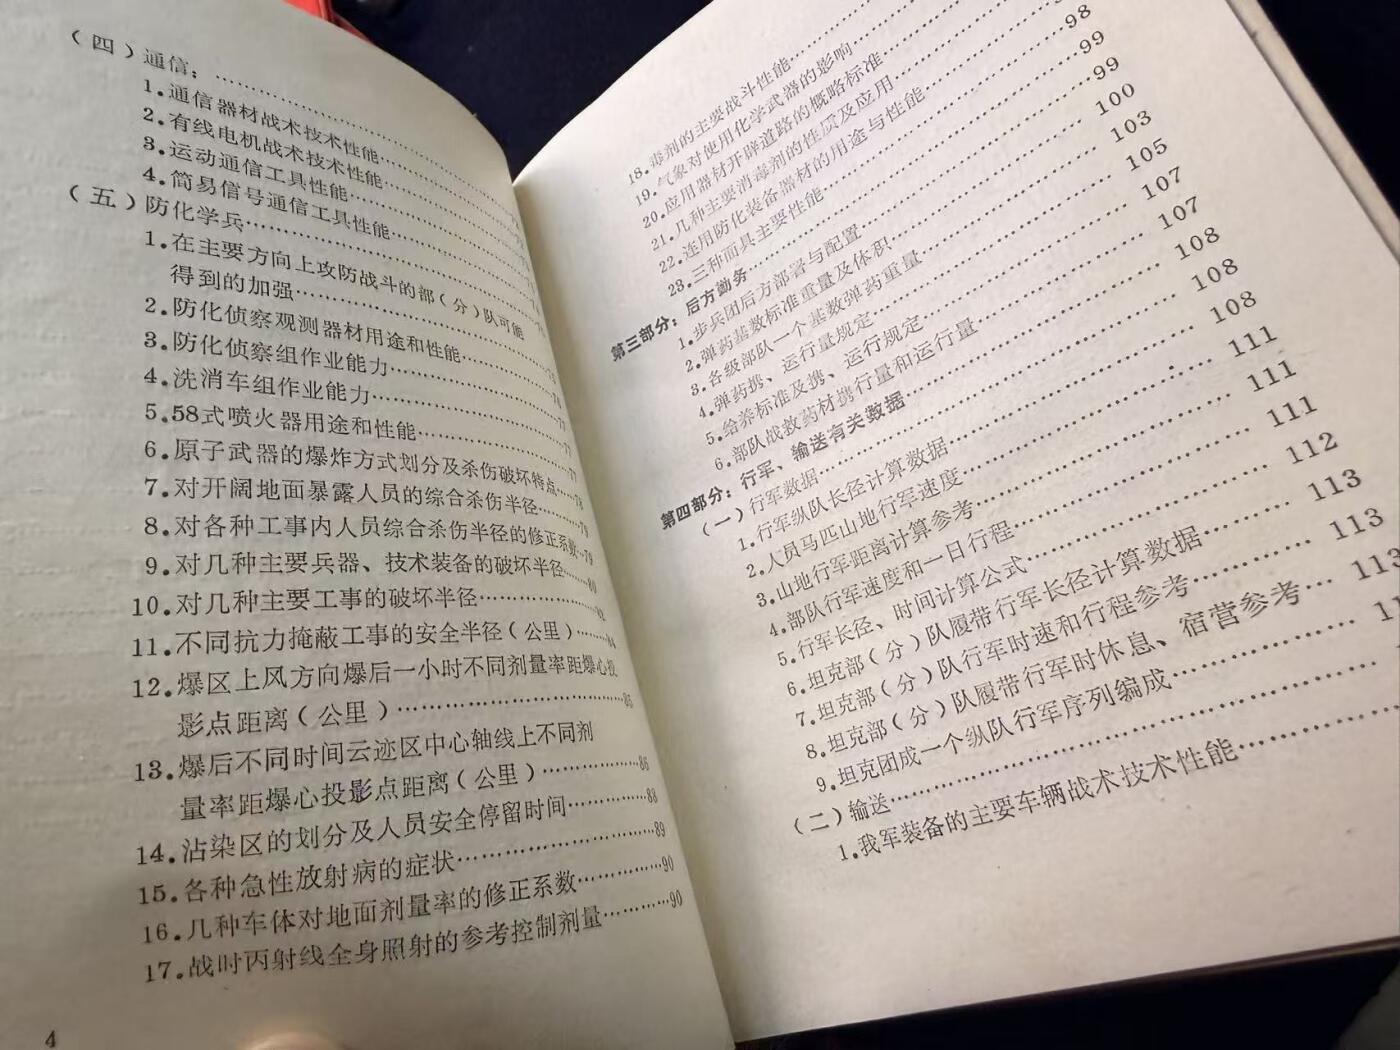 （四）通信：……………………
1.通信器材战术技术性能……………
2.有线电机战术技术性能……………
3.运动通信工具性能……………
4.简易信号通信工具性能……………
（五）防化学兵……………………
1.在主要方向上攻防战斗的部（分）队可能
得到的加强……………………
2.防化侦察观测器材用途和性能…………
3.防化侦察组作业能力……………
4.洗消车组作业能力……………
5.58式喷火器用途和性能…………77
6.原子武器的爆炸方式划分及杀伤破坏特点……78
7.对开阔地面暴露人员的综合杀伤半径……79
8.对各种工事内人员综合杀伤半径的修正系数…79
9.对几种主要兵器、技术装备的破坏半径……80
10.对几种主要工事的破坏半径…………82
11.不同抗力掩蔽工事的安全半径（公里）……84
12.爆区上风方向爆后一小时不同剂量率距爆心投
影点距离（公里）……………………85
13.爆后不同时间云迹区中心轴线上不同剂
量率距爆心投影点距离（公里）…………86
14.沾染区的划分及人员安全停留时间…………88
15.各种急性放射病的症状……………………89
16.几种车体对地面剂量率的修正系数…………90
17.战时丙射线全身照射的参考控制剂量…………90
4
18.毒剂的主要战斗性能……………
19.气象对使用化学武器的影响……………98
20.应用器材开辟道路的概略标准……………99
21.几种主要消毒剂的性质及应用……………99
22.连用防化装备器材的用途与性能……………100
23.三种面具主要性能……………103
第三部分：后方勤务……………105
1.步兵团后方部署与配置……………107
2.弹药基数标准重量及体积……………107
3.各级部队一个基数弹药重量……………108
4.弹药携、运行量规定……………108
5.给养标准及携、运行规定……………108
6.部队战救药材携行量和运行量……………111
第四部分：行军、输送有关数据……………111
（一）行军数据……………111
1.行军纵队长径计算数据……………112
2.人员马匹山地行军速度……………113
3.山地行军距离计算参考……………113
4.部队行军速度和一日行程……………113
5.行军长径、时间计算公式……………
6.坦克部（分）队履带行军长径计算数据
7.坦克部（分）队行军时速和行程参考…………
8.坦克部（分）队履带行军时休息、宿营参考…
9.坦克团成一个纵队行军序列编成……………
（二）输送……………………
1.我军装备的主要车辆战术技术性能…………